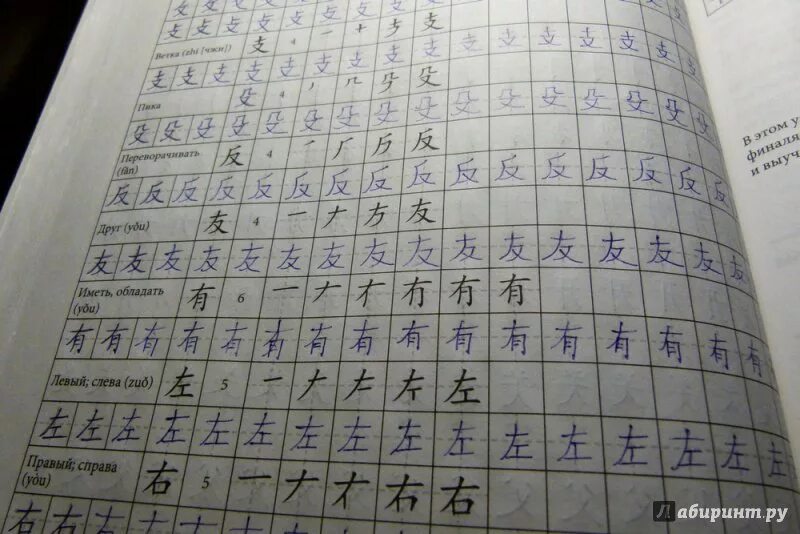 支 支 支 支 支 支 支 支
Ветка (zhi [чжи]) 支 4 一 十 支
支 支 支 支 支 支 支 支 支 支 支 支 支 支 支 支
Пика 殳 4 殳
殳 殳 殳 殳 殳 殳 殳 殳 殳 殳 殳 殳 殳 殳 殳 殳
Переворачивать (fǎn) 反 4 一 厂 反
反 反 反 反 反 反 反 反 反 反 反 反 反 反 反 反
Друг (yǒu) 友 4 一 ナ 方 友
友 友 友 友 友 友 友 友 友 友 友 友 友 友 友 友
Иметь, обладать (yǒu) 有 6 一 ナ 有 有
有 有 有 有 有 有 有 有 有 有 有 有 有 有 有 有
Левый; слева (zuǒ) 左 5 一 ナ 左
左 左 左 左 左 左 左 左 左 左 左 左 左 左 左 左
Правый; справа (yòu) 右 5 一 ナ 右 右
右 右 右
В этом у
финаля
и выуч
Лабиринт.ру